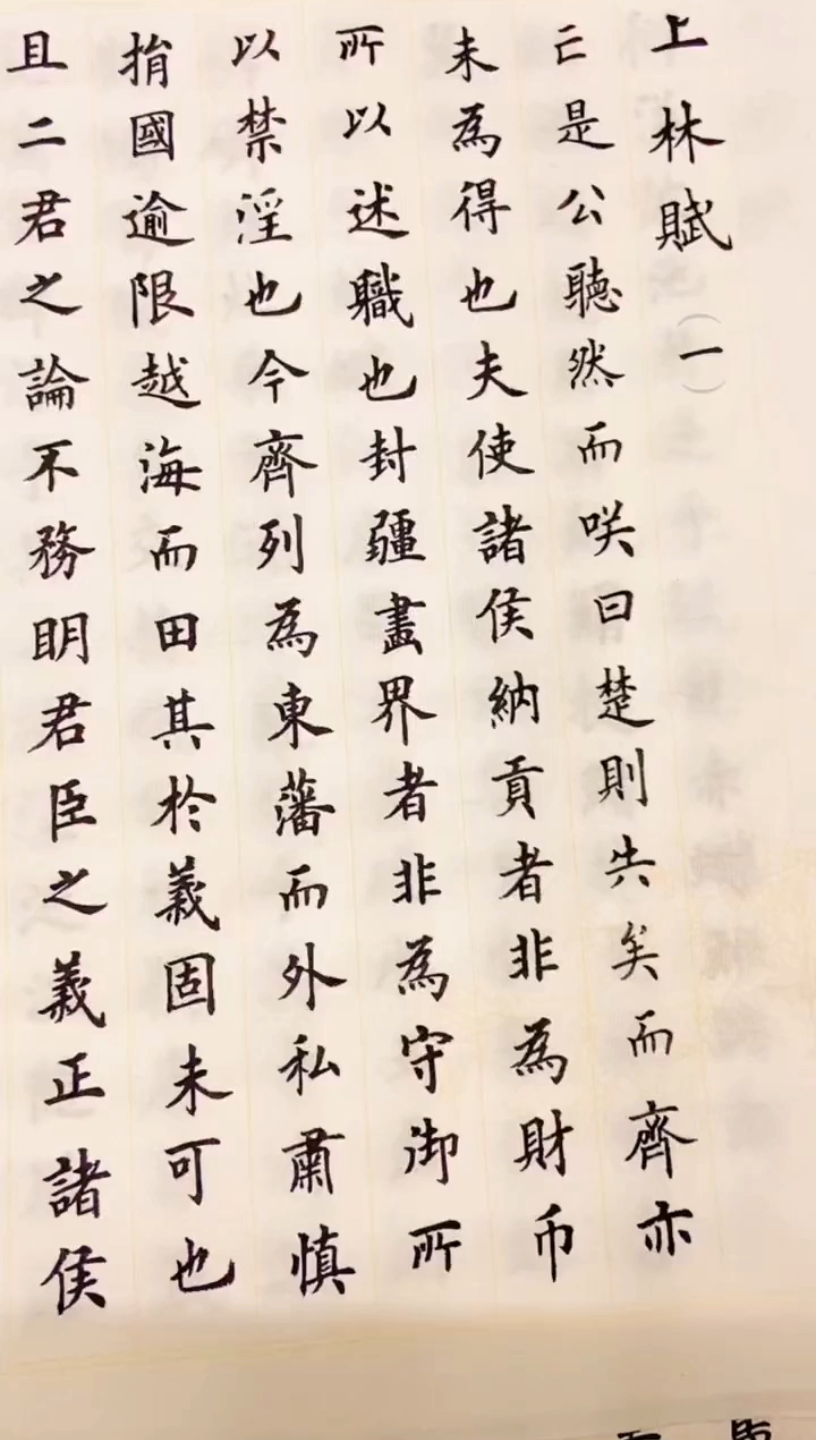 上林賦（一）
亡是公聽然而咲曰楚則失矣而齊亦
未為得也夫使諸侯納貢者非為財币
所以述職也封疆畫界者非為守御所
以禁淫也今齊列為東藩而外私肅慎
捐國逾限越海而田其於義固未可也
且二君之論不務明君臣之義正諸侯